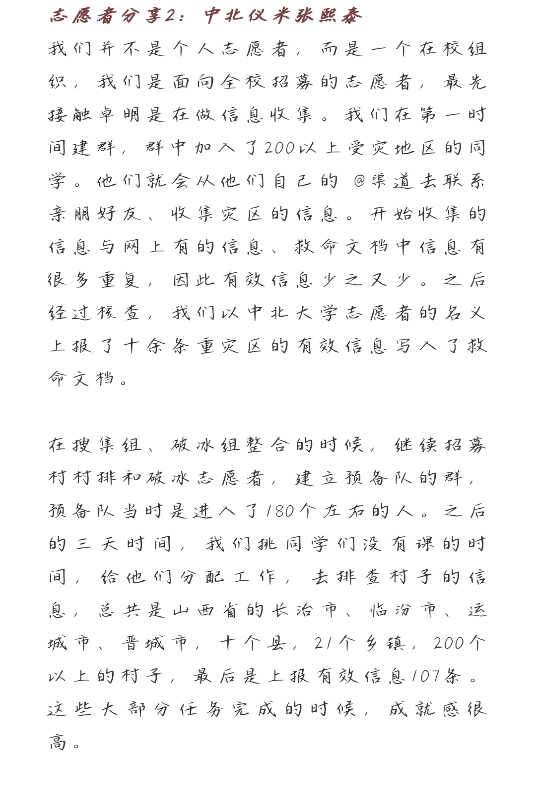 志愿者分享2：中北仪米张熙泰
我们并不是个人志愿者，而是一个在校组
织，我们是面向全校招募的志愿者，最先
接触卓明是在做信息收集。我们在第一时
间建群，群中加入了200以上受灾地区的同
学。他们就会从他们自己的 @渠道去联系
亲朋好友、收集灾区的信息。开始收集的
信息与网上有的信息、救命文档中信息有
很多重复，因此有效信息少之又少。之后
经过核查，我们以中北大学志愿者的名义
上报了十余条重灾区的有效信息写入了救
命文档。
在搜集组、破冰组整合的时候，继续招募
村村排和破冰志愿者，建立预备队的群，
预备队当时是进入了180个左右的人。之后
的三天时间，我们挑同学们没有课的时
间，给他们分配工作，去排查村子的信
息，总共是山西省的长治市、临汾市、运
城市、晋城市，十个县，21个乡镇，200个
以上的村子，最后是上报有效信息107条。
这些大部分任务完成的时候，成就感很
高。